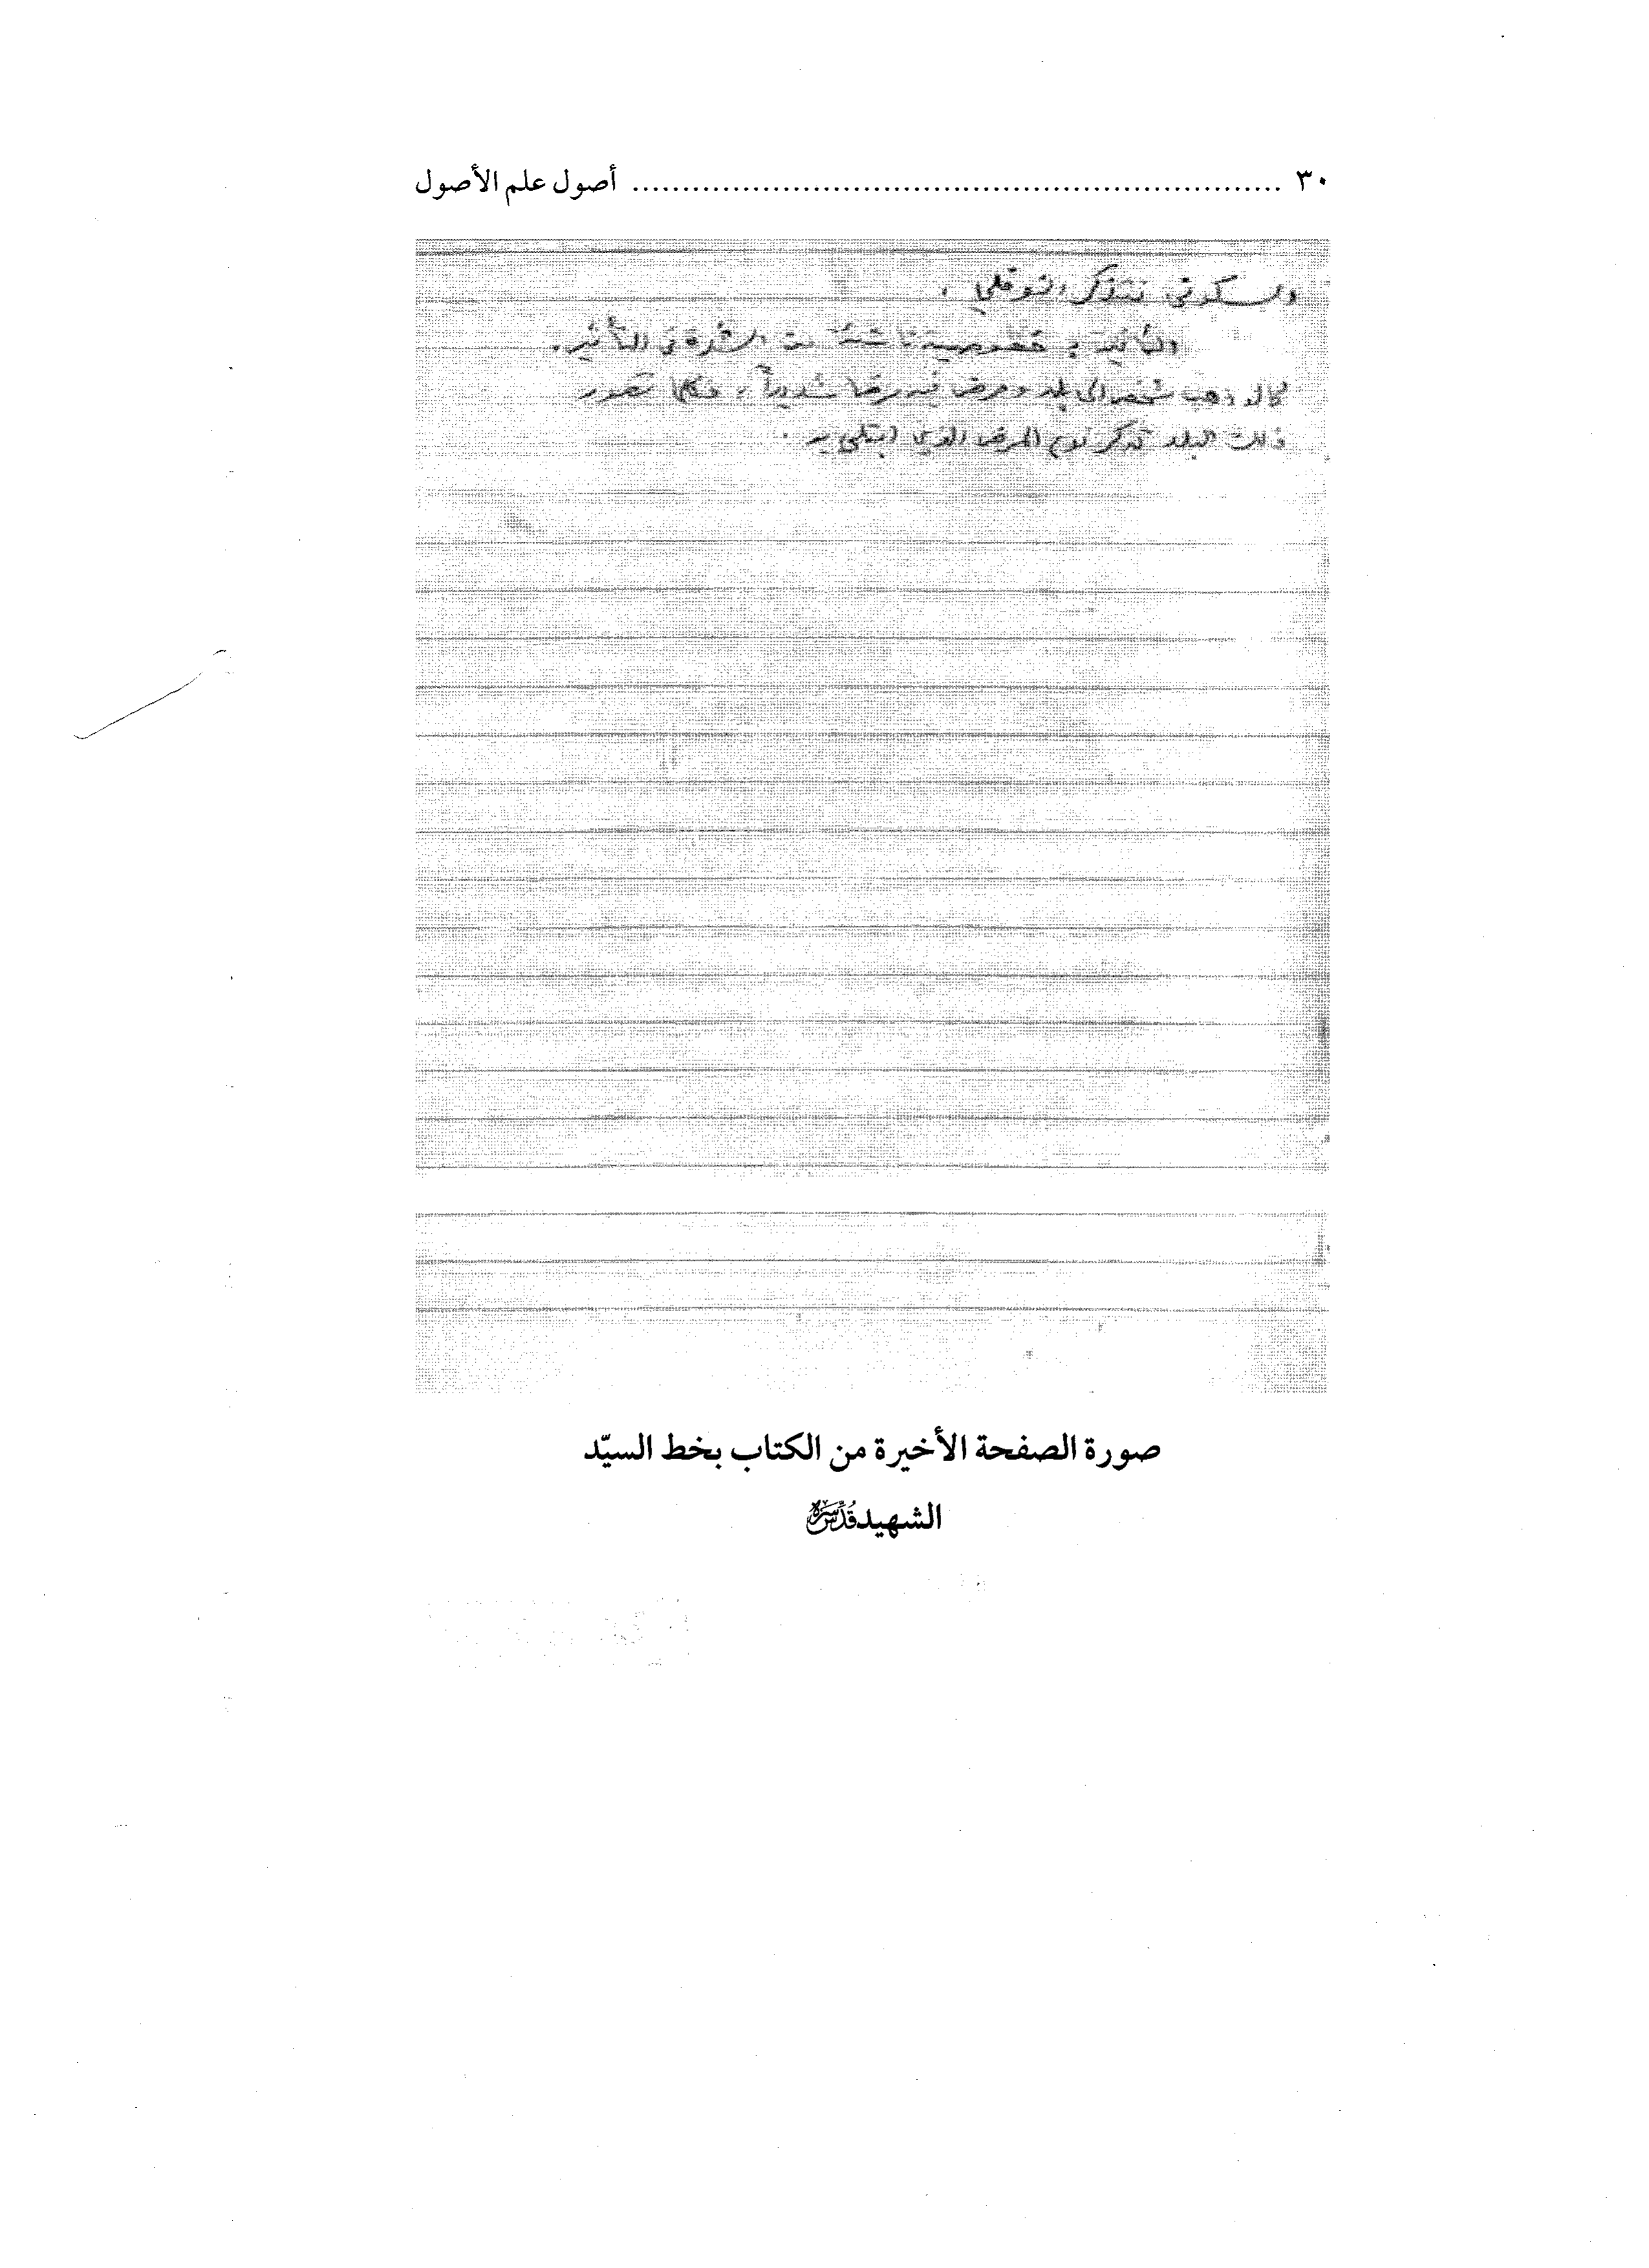 ٣٠ ................................................................ أصول علم الأصول
والسكوني نتذكر النوفلي .
الثانية : خصوصية ناشئة من الشدة في التأثير .
كما لو ذهب شخص الى بلد ومرض فيه مرضا شديداً ، فكلما تصور
ذلك البلد تذكر نوع المرض الذي ابتلي به .
صورة الصفحة الأخيرة من الكتاب بخط السيّد
الشهيد قدس سره